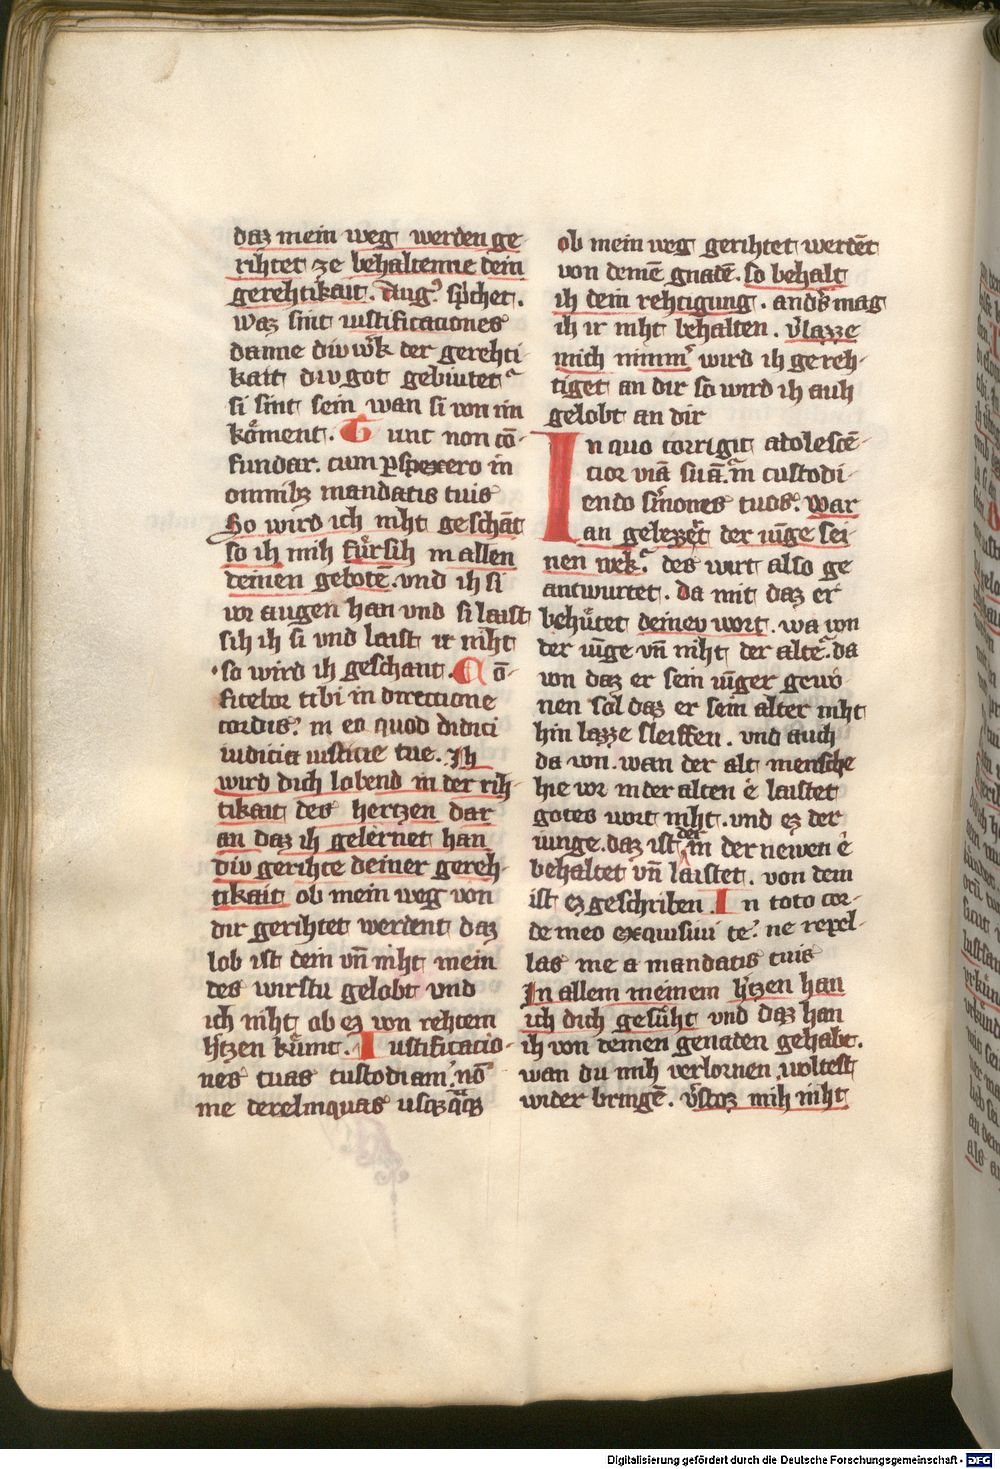 daz mein weg werden ge
rihtet ze behaltenne dein
gerehtikait. Aug᷒ sp̄chet.
Waz sint iustificationes
danne div w̄k der gerehti
kait div got gebiutet
si sint sein wan si von im
koͤment. Tunc non cō-
fundar. cum ꝑspexero in
omnibꝫ mandatis tuis
So wird ich niht geschāt
so ih mih fuͤrsih in allen
deinen gebotē. vnd ih si
vor augen han vnd si laist
sih ih si vnd laist ir niht
so wird ih geschant. Cō-
fitebor tibi in directione
cordis. in eo quod didici
iudicia iusticie tue. Ih
wird dich lobend in der rih-
tikait des hertzen dar
an daz ih gelernet han
div gerihte deiner gereh-
tikait ob mein weg von
dir gerihtet werdent daz
lob ist dein vn̄ niht mein
des wirstu gelobt vnd
ich niht ob ez von rehtem
h̄tzen kuͤmt. Iustificatio-
nes tuas custodiam. nō
me derelinquas usqꝫq̄qꝫ
ob mein weg gerihtet werdēt
von deinē gnadē. so behalt
ih dein rehtigung. anders mag
ih ir niht behalten. v̄lazze
mich nimm̄ wird ih gereh-
tiget an dir so wird ih auh
gelobt an dir
In quo corrigit adolescē-
cior viā suā. in custodi-
endo s̄mones tuos. War
an gelezzet der iūge sei-
nen wek. des wirt also ge
antwurtet. da mit daz er
behuͤtet deinev wort. wa von
der iūge vn̄ niht der altē. da
von daz er sein iūger gewo-
nen sol daz er sein alter niht
hin lazze sleiffen. vnd auch
da von. wan der alt mensche
hie vor in der alten e laistet
gotes wort niht. vnd ez der
iunge. daz ist der in der newen e
behaltet vn̄ laistet. von dem
ist ez geschriben. In toto cor-
de meo exquisiui te. ne repel-
las me a mandatis tuis
In allem meinem h̄tzen han
ich dich gesuͤht vnd daz han
ih von deinen genaden gehabt.
wan du mih verlornen woltest
wider bringē. v̄stoz mih niht
Digitalisierung gefördert durch die Deutsche Forschungsgemeinschaft - DFG